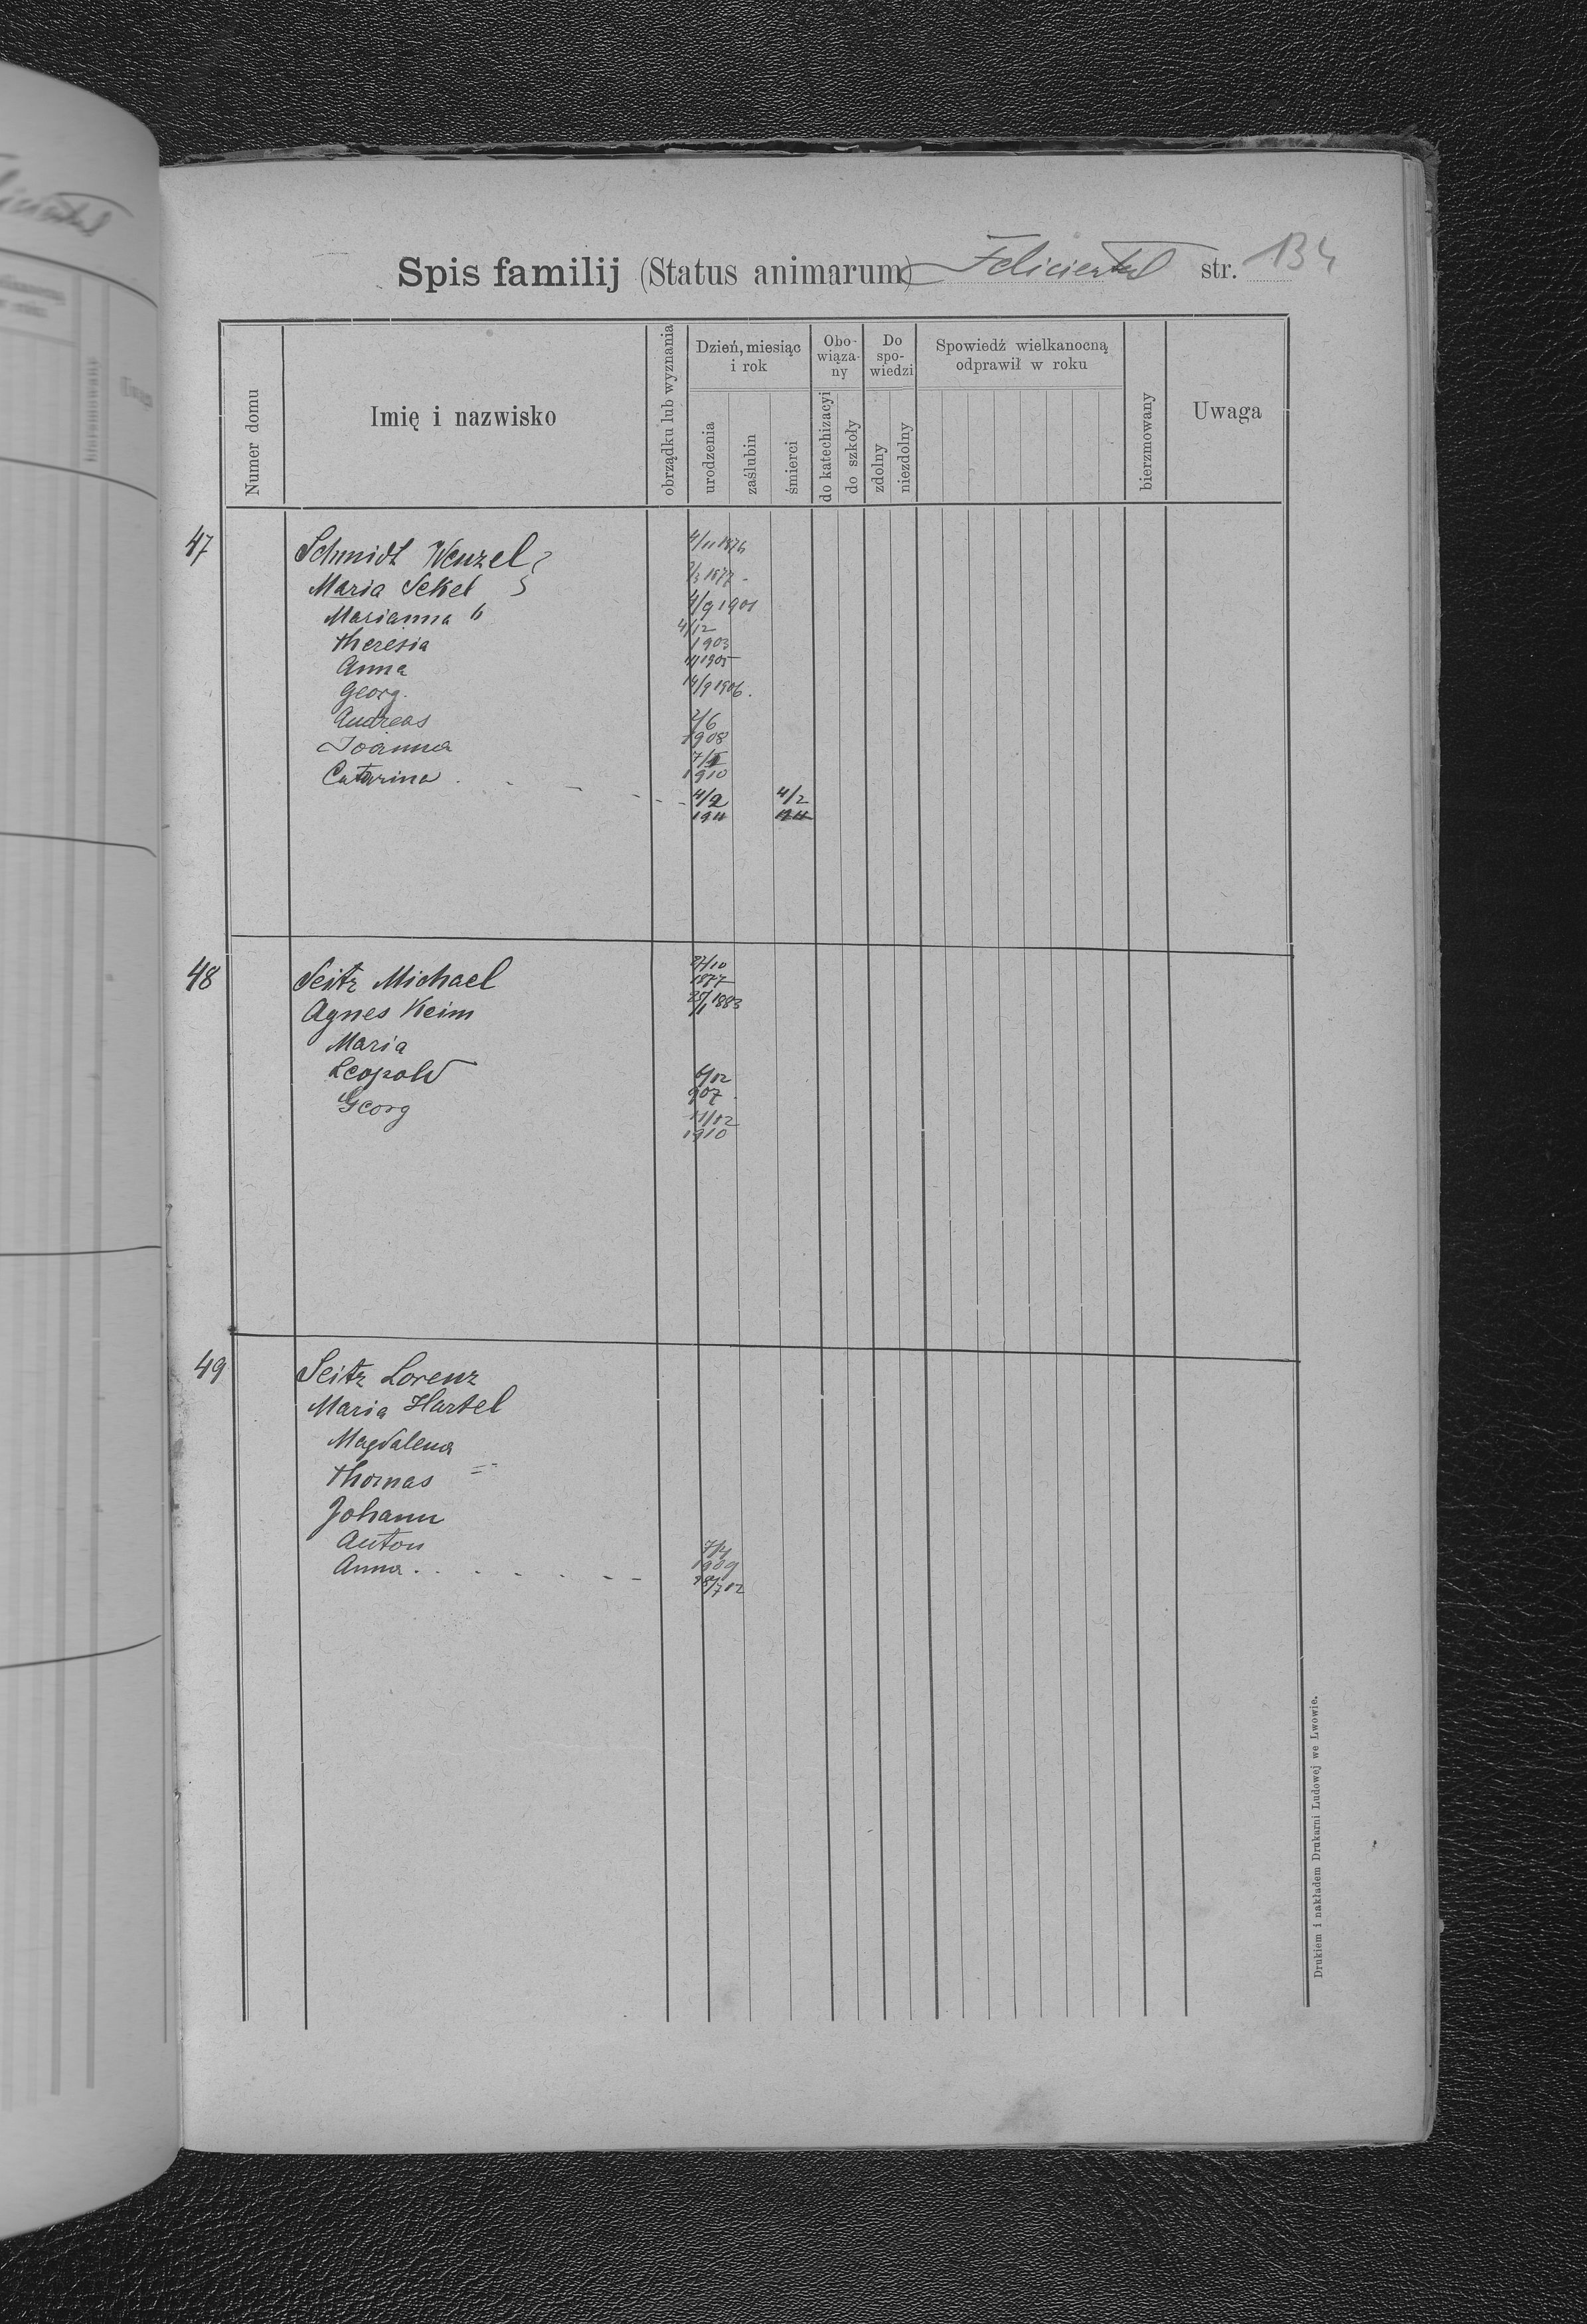 Spis familij (Status animarum) Feliciental str. 134
Numer domu
Imię i nazwisko
obrządku lub wyznania
Dzień, miesiąc i rok
urodzenia
zaślubin
śmierci
Obowiązany
do katechizacyi
do szkoły
Do spowiedzi
zdolny
niezdolny
Spowiedź wielkanocną odprawił w roku
bierzmowany
Uwaga
47 Schmidt Wenzel 4/11 1876
Maria Sekel 1877
Marianna " 4/9 1901
Theresia 4/12 1903
Anna 1905
Georg. 14/9 1906.
Andreas 2/6 1908
Joanna 1910
Catarina . - - - - - 4/2 1911 4/2 1911
48 Seitz Michael 27/10 1877
Agnes Keim 25/1 1883
Maria
Leopold 6/12 907
Georg 11/12 1910
49 Seitz Lorenz
Maria Hartel
Magdalena
Thomas
Johann
Anton 7/4 1909
Anna . . . . . - - 28/7 12
Drukiem i nakładem Drukarni Ludowej we Lwowie.